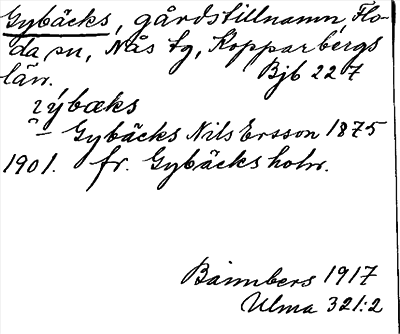 Gybäcks, gårdstillnamn, Flo-
da sn, Nås tg, Kopparbergs
län. Bjb 227
ʒýbæks
– Gybäcks Nils Ersson 1875
1901. fr. Gybäcksholn.
Bannbers 1917
Ulma 321:2